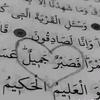 وَمَا شَهِدْنَا
وَسْـَٔلِ الْقَرْيَةَ الَّتِي
وَإِنَّا لَصَادِقُونَ
فَصَبْرٌ جَمِيلٌ
الْعَلِيمُ الْحَكِيمُ